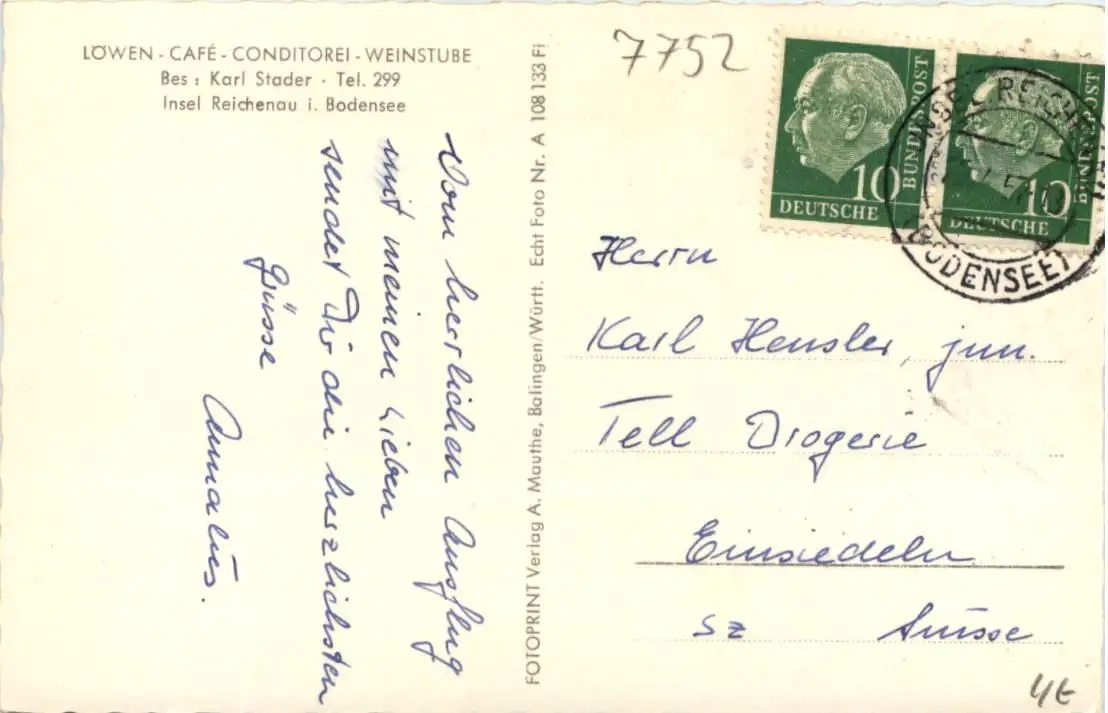 LÖWEN - CAFÉ - CONDITOREI - WEINSTUBE
Bes : Karl Stader · Tel. 299
Insel Reichenau i. Bodensee
Vom herrlichen Ausflug
mit meinen Lieben
sendet Dir die herzlichsten
Grüsse
FOTOPRINT Verlag A. Mauthe, Balingen/Württ. Echt Foto Nr. A 108 133 Fi
7752
BUNDESPOST
10
DEUTSCHE
BUNDESPOST
10
DEUTSCHE
INSEL REICHENAU
(BODENSEE)
Herrn
Karl Hensler, jun.
Tell Drogerie
Einsiedeln
SZ Suisse
4E